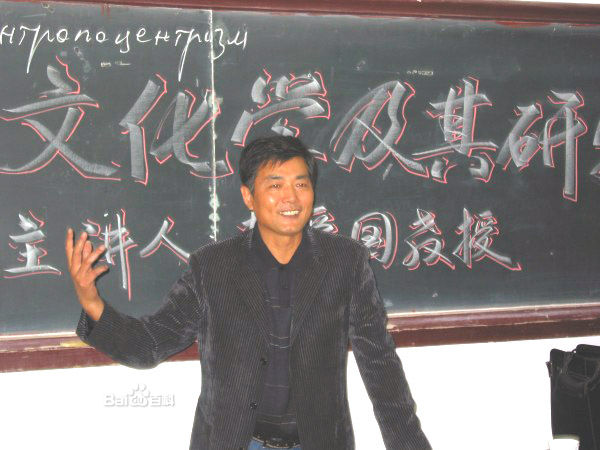 нтропоцентризм
文化学及其研
主讲人 国教授
Bai du 百科